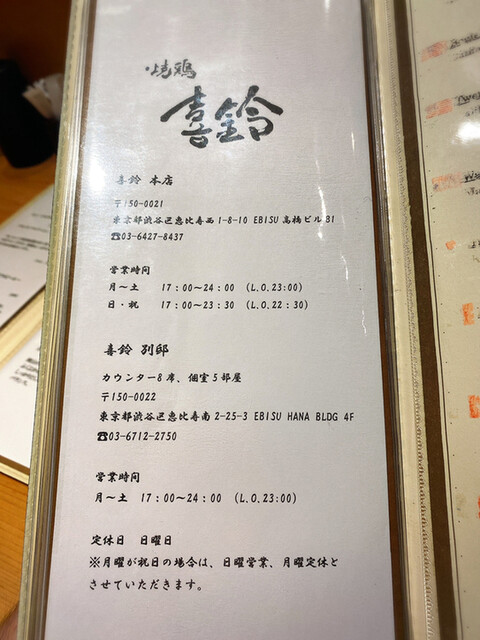 焼鶏
喜鈴
喜鈴 本店
〒150-0021
東京都渋谷区恵比寿西1-8-10 EBISU高橋ビルB1
☎03-6427-8437
営業時間
月〜土 17:00〜24:00 (L.O.23:00)
日・祝 17:00〜23:30 (L.O.22:30)
喜鈴 別邸
カウンター8席、個室5部屋
〒150-0022
東京都渋谷区恵比寿南2-25-3 EBISU HANA BLDG 4F
☎03-6712-2750
営業時間
月〜土 17:00〜24:00 (L.O.23:00)
定休日 日曜日
※月曜が祝日の場合は、日曜営業、月曜定休と
させていただきます。